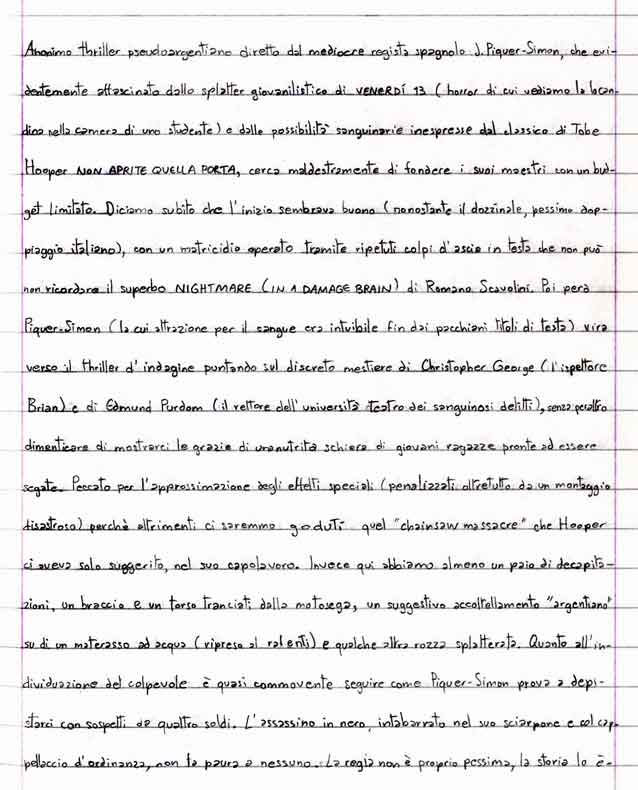 Anonimo thriller pseudoargentiano diretto dal mediocre regista spagnolo J. Piquer-Simon, che evi-
dentemente affascinato dallo splatter giovanilistico di VENERDÍ 13 (horror di cui vediamo la locan-
dina nella camera di uno studente) e dalle possibilità sanguinarie inespresse dal classico di Tobe
Hooper NON APRITE QUELLA PORTA, cerca maldestramente di fondere i suoi maestri con un bud-
get limitato. Diciamo subito che l'inizio sembrava buono (nonostante il dozzinale, pessimo dop-
piaggio italiano), con un matricidio operato tramite ripetuti colpi d'ascia in testa che non può
non ricordare il superbo NIGHTMARE (IN A DAMAGE BRAIN) di Romano Scavolini. Poi però
Piquer-Simon (la cui attrazione per il sangue era intuibile fin dai pacchiani titoli di testa) vira
verso il thriller d'indagine puntando sul discreto mestiere di Christopher George (l'ispettore
Brian) e di Edmund Purdom (il rettore dell'università teatro dei sanguinosi delitti), senza peraltro
dimenticare di mostrarci le grazie di una nutrita schiera di giovani ragazze pronte ad essere
segate. Peccato per l'approssimazione degli effetti speciali (penalizzati oltretutto da un montaggio
disastroso) perchè altrimenti ci saremmo goduti quel "chainsaw massacre" che Hooper
ci aveva solo suggerito, nel suo capolavoro. Invece qui abbiamo almeno un paio di decapita-
zioni, un braccio e un torso tranciati dalla motosega, un suggestivo accoltellamento "argentiano"
su di un materasso ad acqua (ripreso al ralenti) e qualche altra rozza splatterata. Quanto all'in-
dividuazione del colpevole è quasi commovente seguire come Piquer-Simon prova a depi-
starci con sospetti da quattro soldi. L'assassino in nero, intabarrato nel suo sciarpone e col cap-
pellaccio d'ordinanza, non fa paura a nessuno. La regia non è proprio pessima, la storia lo è.